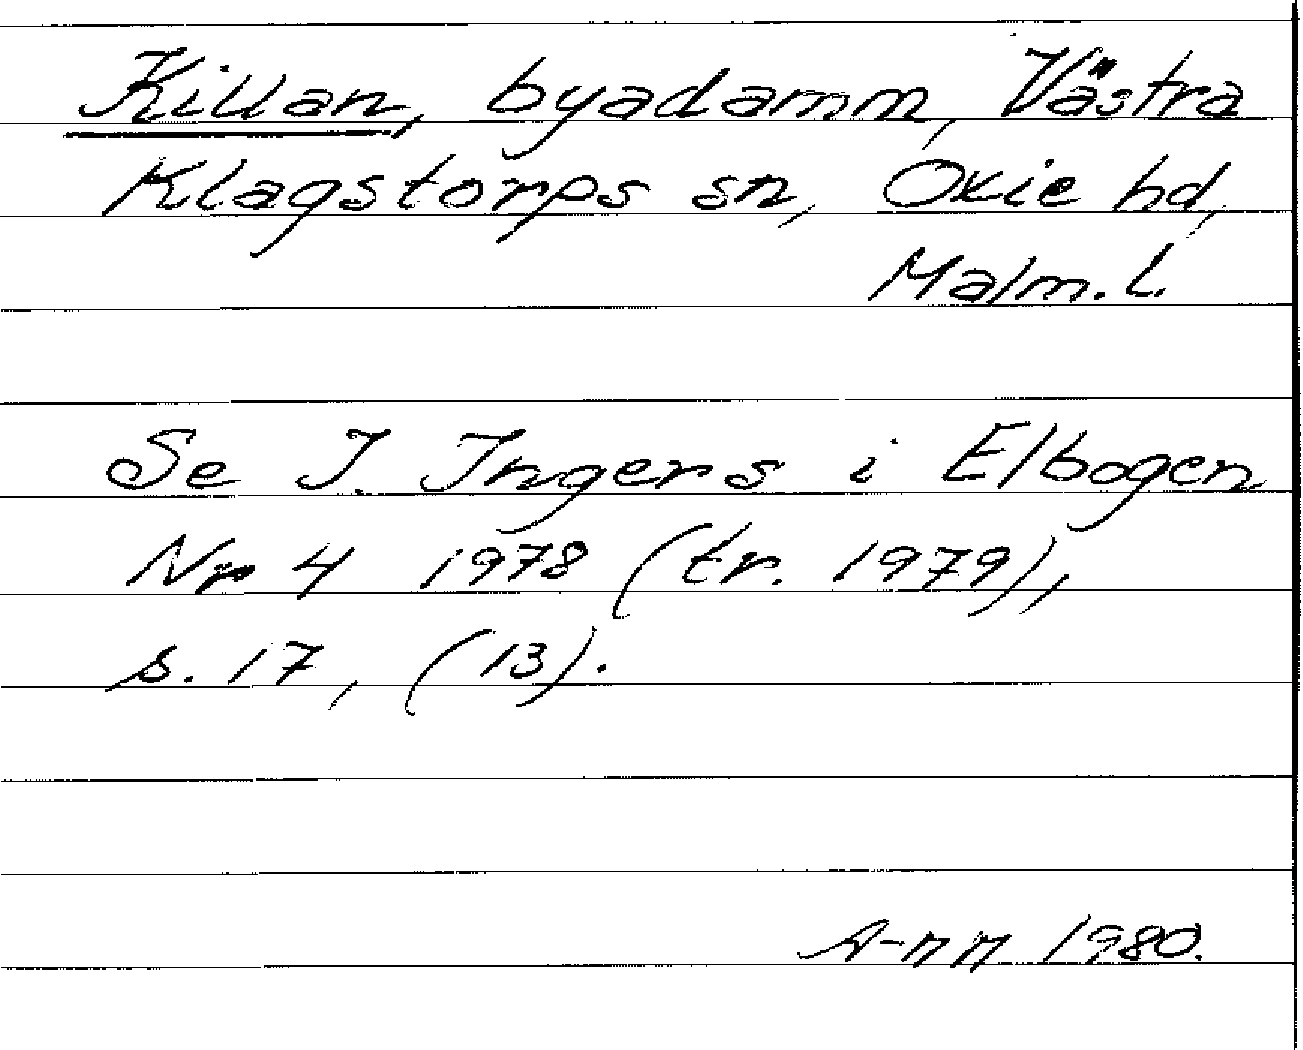 Killan, byadamm, Västra
Klagstorps sn, Oxie hd,
Malm. l.
Se I. Ingers i Elbogen
Nr 4 1978 (tr. 1979),
s. 17, (13).
A-nn 1980.